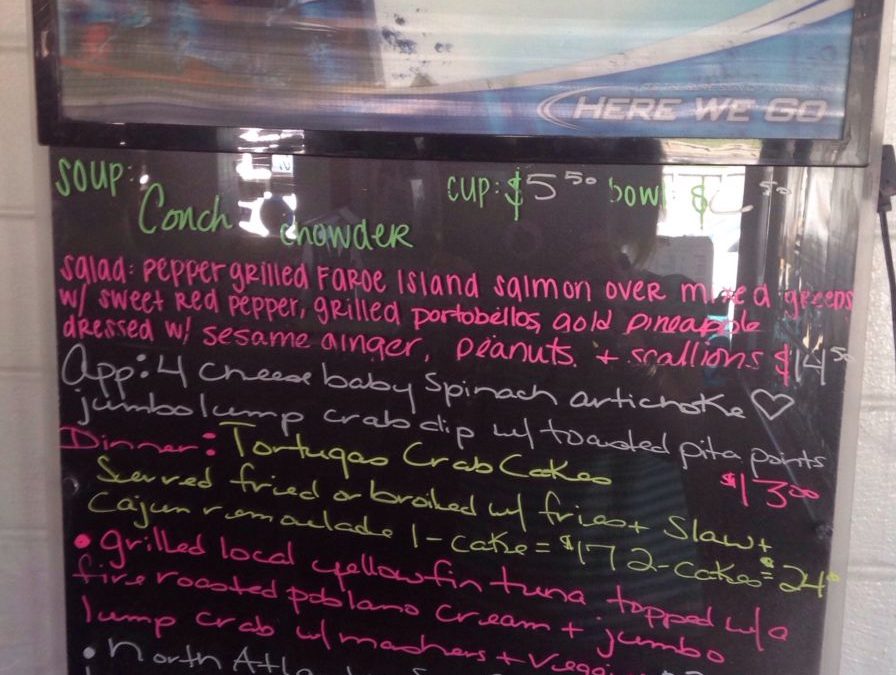 HERE WE GO
SOUP: CUP: $5 50 bowl $ 50
Conch chowder
Salad: pepper grilled Faroe Island salmon over mixed greens
w/ sweet red pepper, grilled portobellos, gold pineapple
dressed w/ sesame ginger, peanuts + scallions $14 50
App: 4 cheese baby Spinach artichoke ♡
jumbo lump crab dip w/ toasted pita points
$13 00
Dinner: Tortugas Crab Cakes
Served fried or broiled w/ fries + Slaw +
Cajun remoulade 1-cake = $17 2-cakes = $24
• grilled local yellowfin tuna topped w/ a
fire roasted poblano cream + jumbo
lump crab w/ mashers +
• North